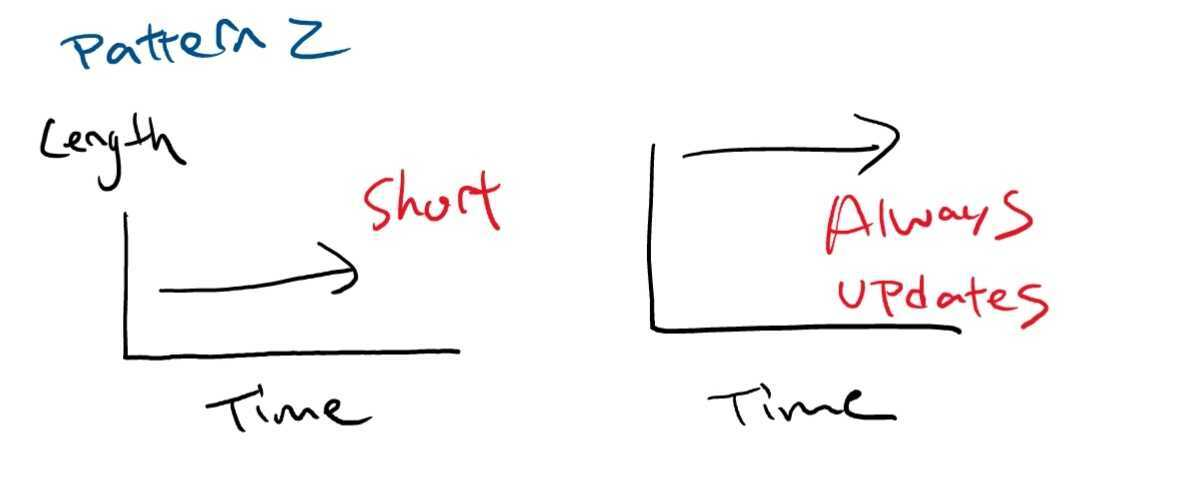 Pattern 2
Length
Short
Always
updates
Time
Time